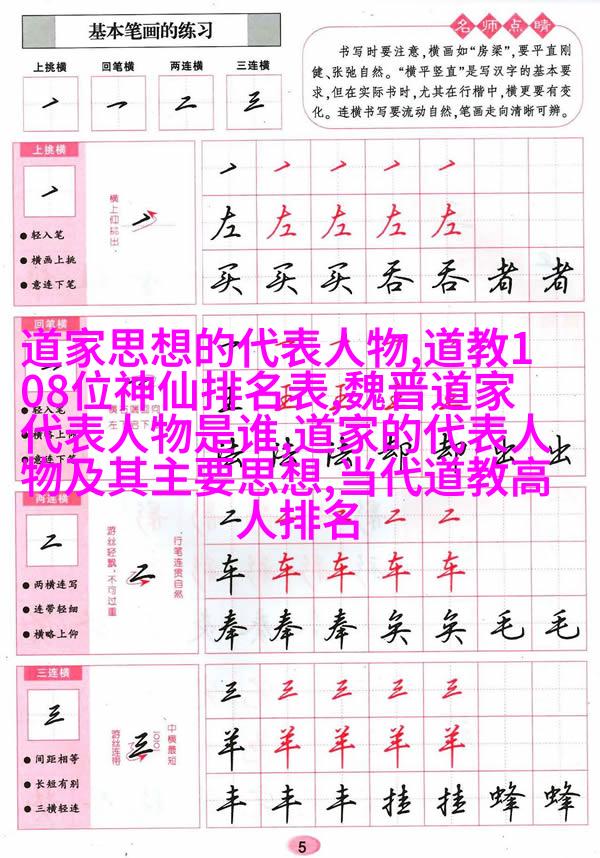 基本笔画的练习
上挑横 回笔横 两连横 三连横
名师点睛
书写时要注意,横画如“房梁”,要平直刚
健、张弛自然。“横平竖直”是写汉字的基本要
求,但在实际书时,尤其在行楷中,横更要有变
化。连横书写要流动自然,笔画走向清晰可辨。
上挑横
● 轻入笔
● 横画上挑
● 意连下笔
横上仰挑出
左 左 左 左 左
买 买 买 吞 吞 者 者
回笔横
道家思想的代表人物,道教1
08位神仙排名表,魏晋道家
代表人物是谁,道家的代表人
物及其主要思想,当代道教高
人排名
法 法 法 却 却 出 出
● 意连下笔
两连横
● 两横连写
● 连带轻细
● 横略上仰
游丝轻飘,不可过重
行笔连贯自然
二 二 二 二 二
车 车 车 车 车
奉 奉 奉 矣 矣 毛 毛
三连横
三
● 间距相等
● 长短有别
● 三横轻连
游丝连带
中横最短
三 三 三 三 三
羊 羊 羊 羊 羊
丰 丰 丰 挂 挂 蜂 蜂
5